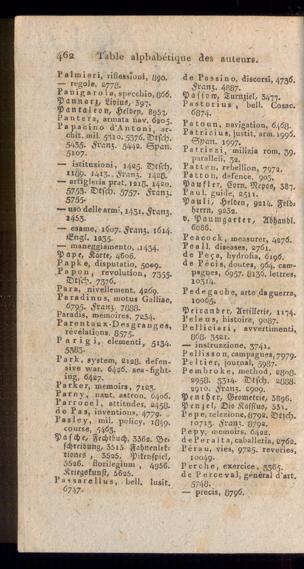 462 Table alphabétique des auteurs.
Palmieri, riflessioni, 890.
— regole, 2778.
Panigarola, specchio, 866.
Pannarz, Livius, 397.
Pantaleon, Helden, 8952.
Pantera, armata nav. 6205.
Papacino d'Antoni, ar-
chit. mil. 5210. 5376. Dtsch.
5435. Franz. 5442. Span.
5107.
— istituzioni, 1425. Dtsch.
1189. 1413. Franz. 1428.
— artiglieria prat. 1218. 1420.
5753. Dtsch. 5757. Franz.
5755.
— uso delle armi, 1431. Franz.
2463.
— esame, 1607. Franz. 1614.
Engl. 1235.
— maneggiamento, 1434.
Pape, Karte, 4606.
Papke, disputatio, 5009.
Papon, revolution, 7355.
Dtsch. 7376.
Para, nivellement, 4269.
Paradinus, motus Galliae,
6795. Franz. 7888.
Paradis, mémoires, 7234.
Parentaux-Desgranges,
révelations, 8575.
Parigi, elementi, 5134.
5383.
Park, system, 2128. defen-
sive war. 6426. sea-fight-
ing, 6427.
Parker, memoirs, 7123.
Parny, naut. astron. 6406.
Parrocel, attitudes, 2458.
de Pas, inventions, 4779.
Pasley, mil. policy, 1849.
course, 5463.
Pasche, Fechtbuch, 3362. Be-
schreibung, 3515. Fahnenlek-
tiones, 3525. Pikenspiel,
3526. florilegium, 4956.
Kriegskunst, 5625.
Passarellus, bell. lusit.
6747.
de Passino, discorsi, 4736.
Franz. 4887.
Passow, Turnziel, 3477.
Pastorius, bell. Cosac.
6874.
Patoun, navigation, 6468.
Patricius, justit. arm. 1996.
Span. 1997.
Patrizzi, milizia rom. 39.
paralleli, 32.
Patten, rebellion, 7972.
Patton, defence, 905.
Paufler, Corn. Nepos, 387.
Paul, guide, 2511.
Pauli, Helden, 9214. Feld-
herrn, 9232.
v. Paumgarter, Abhandl.
6086.
Peacock, measurer, 4276.
Peall, diseases, 2761.
de Peça, hydrofia, 6196.
de Pécis, doutes, 964. cam-
pagnes, 6957. 8130. lettres,
10314.
Pedegache, arte da guerra,
10063.
Peitzander, Artillerie, 1174.
Peleus, histoires, 9087.
Pelliciari, avvertimenti,
868. 3521.
— instruzione, 3741.
Pellisson, campagnes, 7979.
Peltier, journal, 5987.
Pembroke, method, 2808.
2958. 3314. Dtsch. 2888.
2910. Franz. 2909.
Penther, Geometrie, 3896.
Penzel, Die Kassius, 331.
Pepe, relezione, 8792. Dtsch.
10713. Franz. 8792.
Pepy, memoirs, 6422.
de Peralta, caballeria, 2762.
Pérau, vies, 9725. reveries,
10049.
Perche, exercice, 3365.
de Perceval, général d'art.
5748.
— precis, 8796.